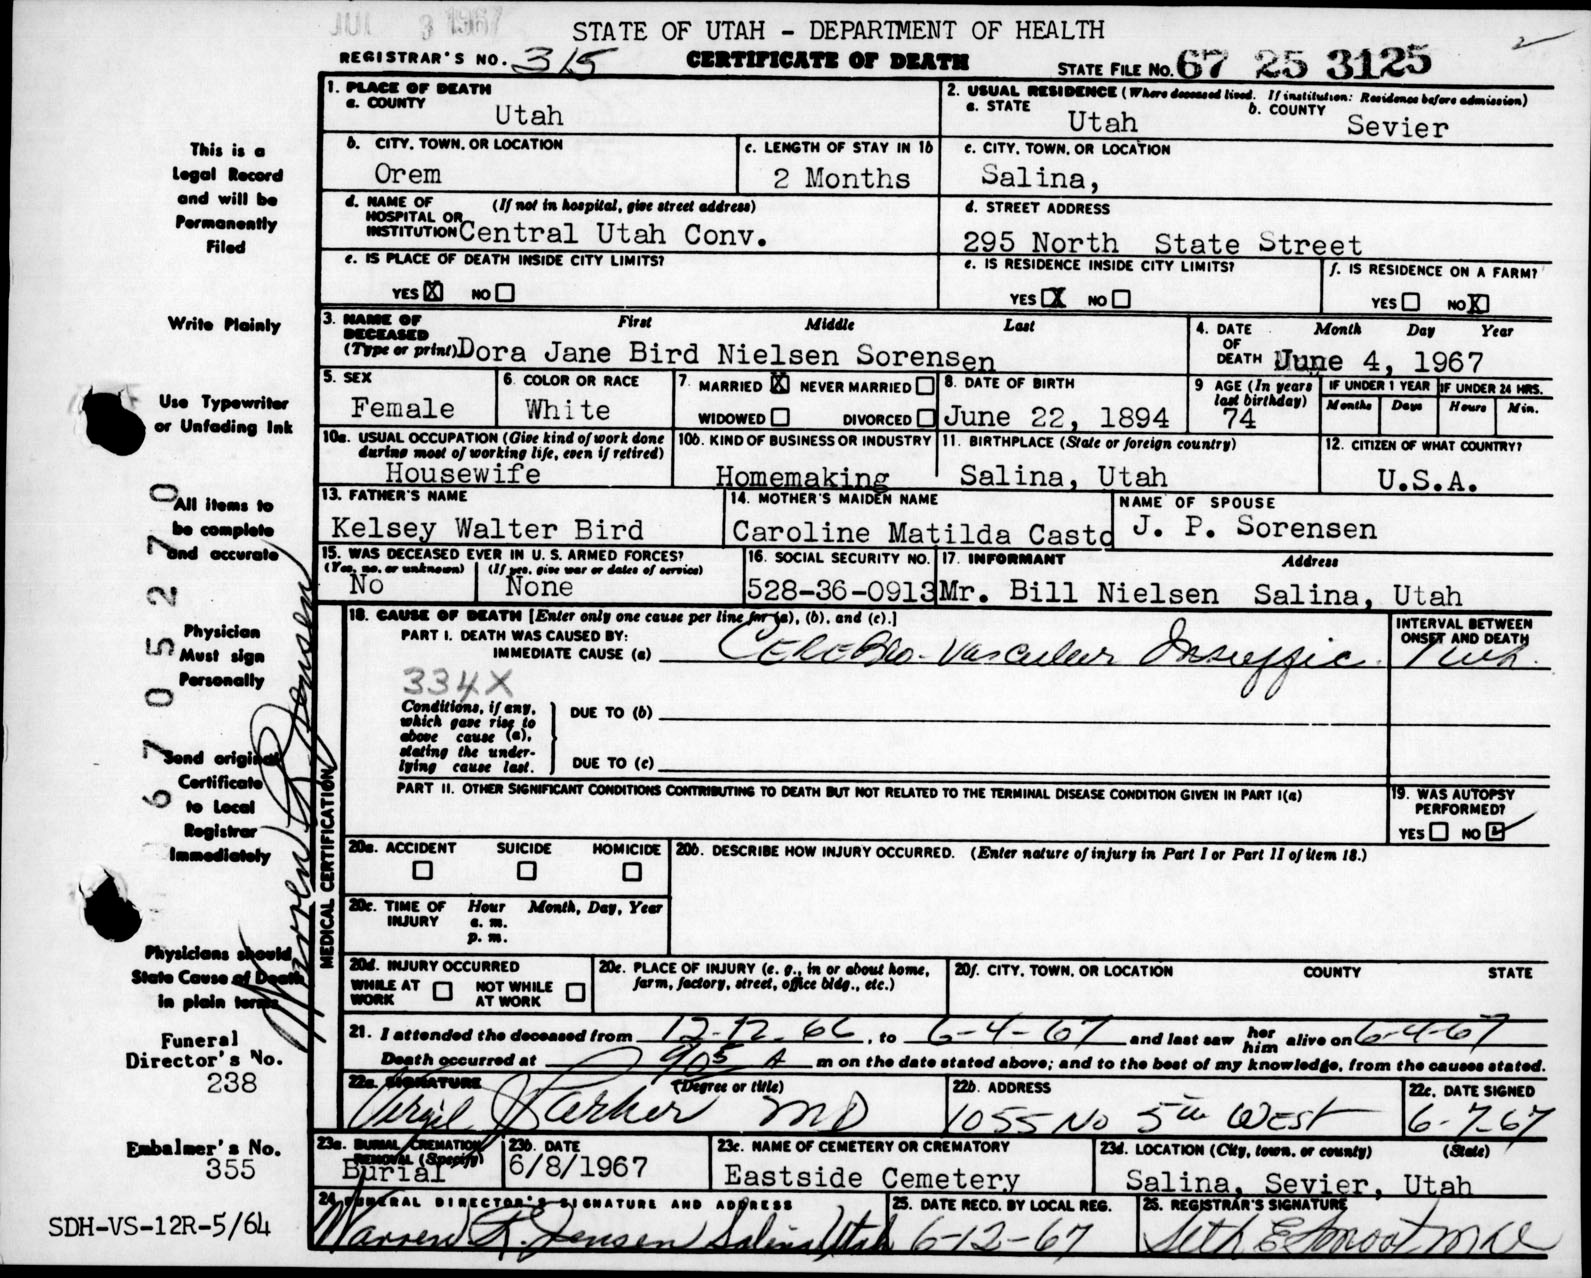 JUL 3 1967
STATE OF UTAH - DEPARTMENT OF HEALTH
REGISTRAR'S NO. 315
CERTIFICATE OF DEATH
STATE FILE NO. 67 25 3125
1. PLACE OF DEATH
a. COUNTY
Utah
2. USUAL RESIDENCE (Where deceased lived. If institution: Residence before admission)
a. STATE
Utah
b. COUNTY
Sevier
b. CITY, TOWN, OR LOCATION
Orem
c. LENGTH OF STAY IN 1b
2 Months
c. CITY, TOWN, OR LOCATION
Salina,
d. NAME OF (If not in hospital, give street address)
HOSPITAL OR
INSTITUTION Central Utah Conv.
d. STREET ADDRESS
295 North State Street
e. IS PLACE OF DEATH INSIDE CITY LIMITS?
YES X NO
e. IS RESIDENCE INSIDE CITY LIMITS?
YES X NO
f. IS RESIDENCE ON A FARM?
YES NO X
3. NAME OF DECEASED
First Middle Last
(Type or print) Dora Jane Bird Nielsen Sorensen
4. DATE OF DEATH
Month Day Year
June 4, 1967
5. SEX
Female
6. COLOR OR RACE
White
7. MARRIED X NEVER MARRIED
WIDOWED DIVORCED
8. DATE OF BIRTH
June 22, 1894
9 AGE (In years last birthday)
74
IF UNDER 1 YEAR
Months Days
IF UNDER 24 HRS.
Hours Min.
10a. USUAL OCCUPATION (Give kind of work done
during most of working life, even if retired)
Housewife
10b. KIND OF BUSINESS OR INDUSTRY
Homemaking
11. BIRTHPLACE (State or foreign country)
Salina, Utah
12. CITIZEN OF WHAT COUNTRY?
U.S.A.
13. FATHER'S NAME
Kelsey Walter Bird
14. MOTHER'S MAIDEN NAME
Caroline Matilda Casto
NAME OF SPOUSE
J. P. Sorensen
15. WAS DECEASED EVER IN U. S. ARMED FORCES?
(Yes, no, or unknown) (If yes, give war or dates of service)
No None
16. SOCIAL SECURITY NO.
528-36-0913
17. INFORMANT Address
Mr. Bill Nielsen Salina, Utah
18. CAUSE OF DEATH [Enter only one cause per line for (a), (b), and (c).]
PART I. DEATH WAS CAUSED BY:
IMMEDIATE CAUSE (a) Cerebro-Vascular Insuffic.
INTERVAL BETWEEN
ONSET AND DEATH
1 wk.
334X
Conditions, if any,
which gave rise to
above cause (a),
stating the under-
lying cause last.
DUE TO (b)
DUE TO (c)
PART II. OTHER SIGNIFICANT CONDITIONS CONTRIBUTING TO DEATH BUT NOT RELATED TO THE TERMINAL DISEASE CONDITION GIVEN IN PART I(a)
19. WAS AUTOPSY
PERFORMED?
YES NO
20a. ACCIDENT SUICIDE HOMICIDE
20b. DESCRIBE HOW INJURY OCCURRED. (Enter nature of injury in Part I or Part II of item 18.)
20c. TIME OF INJURY
Hour Month, Day, Year
a. m.
p. m.
20d. INJURY OCCURRED
WHILE AT WORK
NOT WHILE AT WORK
20e. PLACE OF INJURY (e. g., in or about home,
farm, factory, street, office bldg., etc.)
20f. CITY, TOWN, OR LOCATION COUNTY STATE
21. I attended the deceased from 12-12-66, to 6-4-67 and last saw her him alive on 6-4-67
Death occurred at 905 A m on the date stated above; and to the best of my knowledge, from the causes stated.
22a. SIGNATURE (Degree or title)
Virgil J Parker MD
22b. ADDRESS
1055 No 5th West
22c. DATE SIGNED
6-7-67
23a. BURIAL, CREMATION
REMOVAL (Specify)
Burial
23b. DATE
6/8/1967
23c. NAME OF CEMETERY OR CREMATORY
Eastside Cemetery
23d. LOCATION (City, town, or county) (State)
Salina, Sevier, Utah
24 FUNERAL DIRECTOR'S SIGNATURE AND ADDRESS
Warren R. Jensen Salina Utah
25. DATE RECD. BY LOCAL REG.
6-12-67
25. REGISTRAR'S SIGNATURE
Seth E Smoot MD
This is a
Legal Record
and will be
Permanently
Filed
Write Plainly
Use Typewriter
or Unfading Ink
All items to
be complete
and accurate
Physician
Must sign
Personally
Send original
Certificate
to Local
Registrar
Immediately
Physicians should
State Cause of Death
in plain terms
Funeral
Director's No.
238
Embalmer's No.
355
SDH-VS-12R-5/64
670 5270
Warren R Jensen
MEDICAL CERTIFICATION